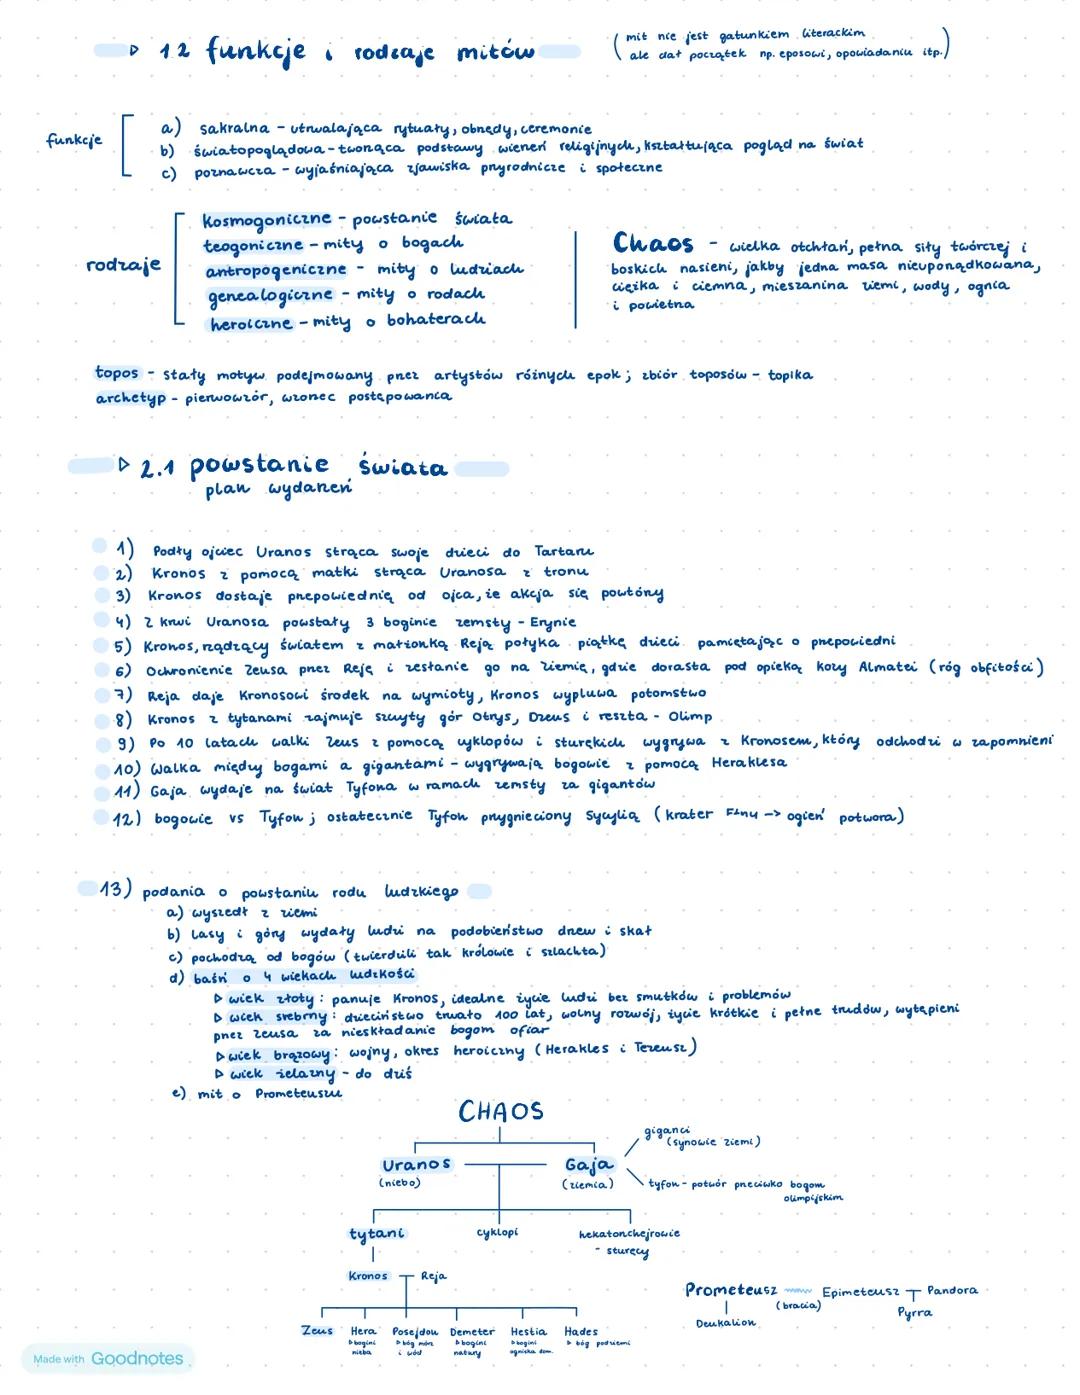 1.2 funkcje i rodzaje mitów
(mit nie jest gatunkiem literackim
ale dał początek np. eposowi, opowiadaniu itp.)
funkcje
a) sakralna - utrwalająca rytuały, obrzędy, ceremonie
b) światopoglądowa - tworząca podstawy wierzeń religijnych, kształtująca pogląd na świat
c) poznawcza - wyjaśniająca zjawiska przyrodnicze i społeczne
rodzaje
kosmogoniczne - powstanie świata
teogoniczne - mity o bogach
antropogeniczne - mity o ludziach
genealogiczne - mity o rodach
heroiczne - mity o bohaterach
Chaos - wielka otchłań, pełna siły twórczej i
boskich nasieni, jakby jedna masa nieuporządkowana,
ciężka i ciemna, mieszanina ziemi, wody, ognia
i powietrza
topos - stały motyw podejmowany przez artystów różnych epok; zbiór toposów - topika
archetyp - pierwowzór, wzorzec postępowania
2.1 powstanie świata
plan wydarzeń
1) Podły ojciec Uranos strąca swoje dzieci do Tartaru
2) Kronos z pomocą matki strąca Uranosa z tronu
3) Kronos dostaje przepowiednię od ojca, że akcja się powtórzy
4) Z krwi Uranosa powstały 3 boginie zemsty - Erynie
5) Kronos, rządzący światem z małżonką Reją połyka piątkę dzieci pamiętając o przepowiedni
6) Ochronienie Zeusa przez Reję i zesłanie go na ziemię, gdzie dorasta pod opieką kozy Almatei (róg obfitości)
7) Reja daje Kronosowi środek na wymioty, Kronos wypluwa potomstwo
8) Kronos z tytanami zajmuje szczyty gór Otrys, Dzeus i reszta - Olimp
9) Po 10 latach walki Zeus z pomocą cyklopów i sturękich wygrywa z Kronosem, który odchodzi w zapomnieni
10) Walka między bogami a gigantami - wygrywają bogowie z pomocą Heraklesa
11) Gaja wydaje na świat Tyfona w ramach zemsty za gigantów
12) bogowie vs Tyfon; ostatecznie Tyfon przygnieciony Sycylią (krater Etny -> ogień potwora)
13) podania o powstaniu rodu ludzkiego
a) wyszedł z ziemi
b) lasy i góry wydały ludzi na podobieństwo drzew i skał
c) pochodzą od bogów (twierdzili tak królowie i szlachta)
d) baśń o 4 wiekach ludzkości
▷ wiek złoty: panuje Kronos, idealne życie ludzi bez smutków i problemów
▷ wiek srebrny: dzieciństwo trwało 100 lat, wolny rozwój, życie krótkie i pełne trudów, wytępieni
przez Zeusa za nieskładanie bogom ofiar
▷ wiek brązowy: wojny, okres heroiczny (Herakles i Tezeusz)
▷ wiek żelazny - do dziś
e) mit o Prometeuszu
CHAOS
giganci
(synowie ziemi)
Uranos Gaja
(niebo) (ziemia)
tyfon - potwór przeciwko bogom
olimpijskim
tytani cyklopi hekatonchejrowie
- sturęcy
Kronos Reja
Prometeusz Epimeteusz Pandora
(bracia)
Deukalion Pyrra
Zeus Hera Posejdon Demeter Hestia Hades
▷ bogini nieba
▷ bóg mórz i wód
▷ bogini natury
▷ bogini ogniska dom.
▷ bóg podziemi
Made with Goodnotes